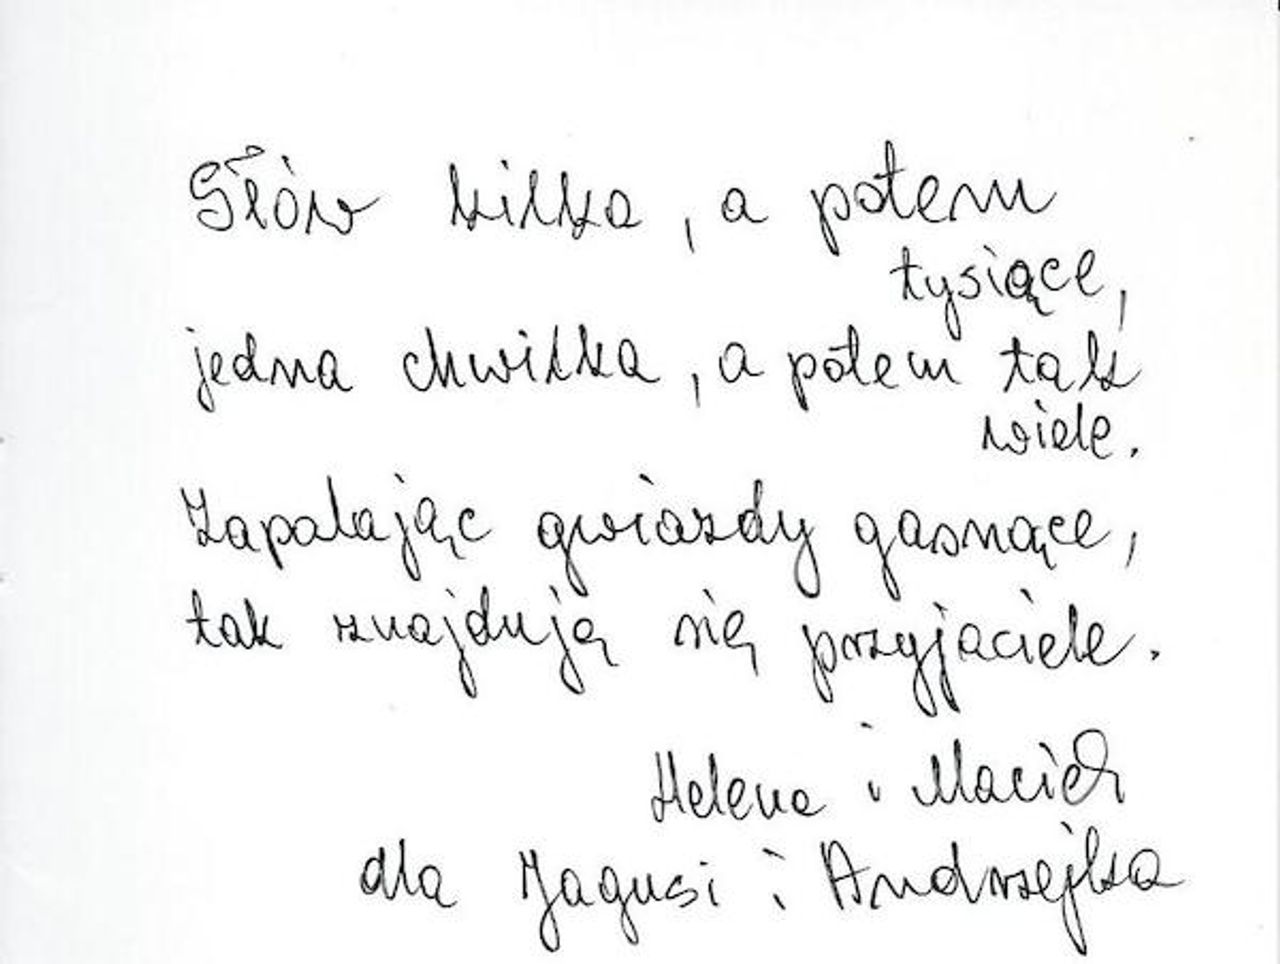 Słów kilka, a potem
tysiące,
jedna chwilka, a potem tak
wiele.
Zapalając gwiazdy gasnące,
tak znajdują się przyjaciele.
Helena i Maciek
dla Jagusi i Andrzejka